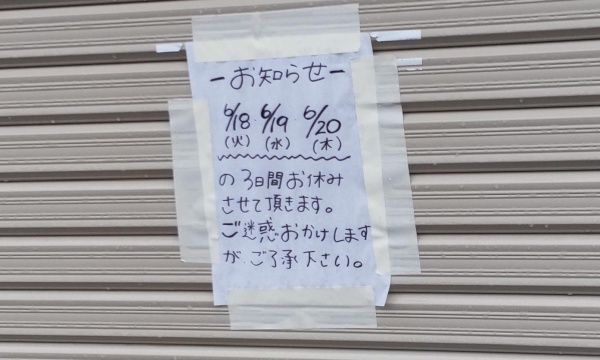 ーお知らせー
6/18 6/19 6/20
(火) (水) (木)
の3日間お休み
させて頂きます。
ご迷惑おかけします
が、ご了承下さい。